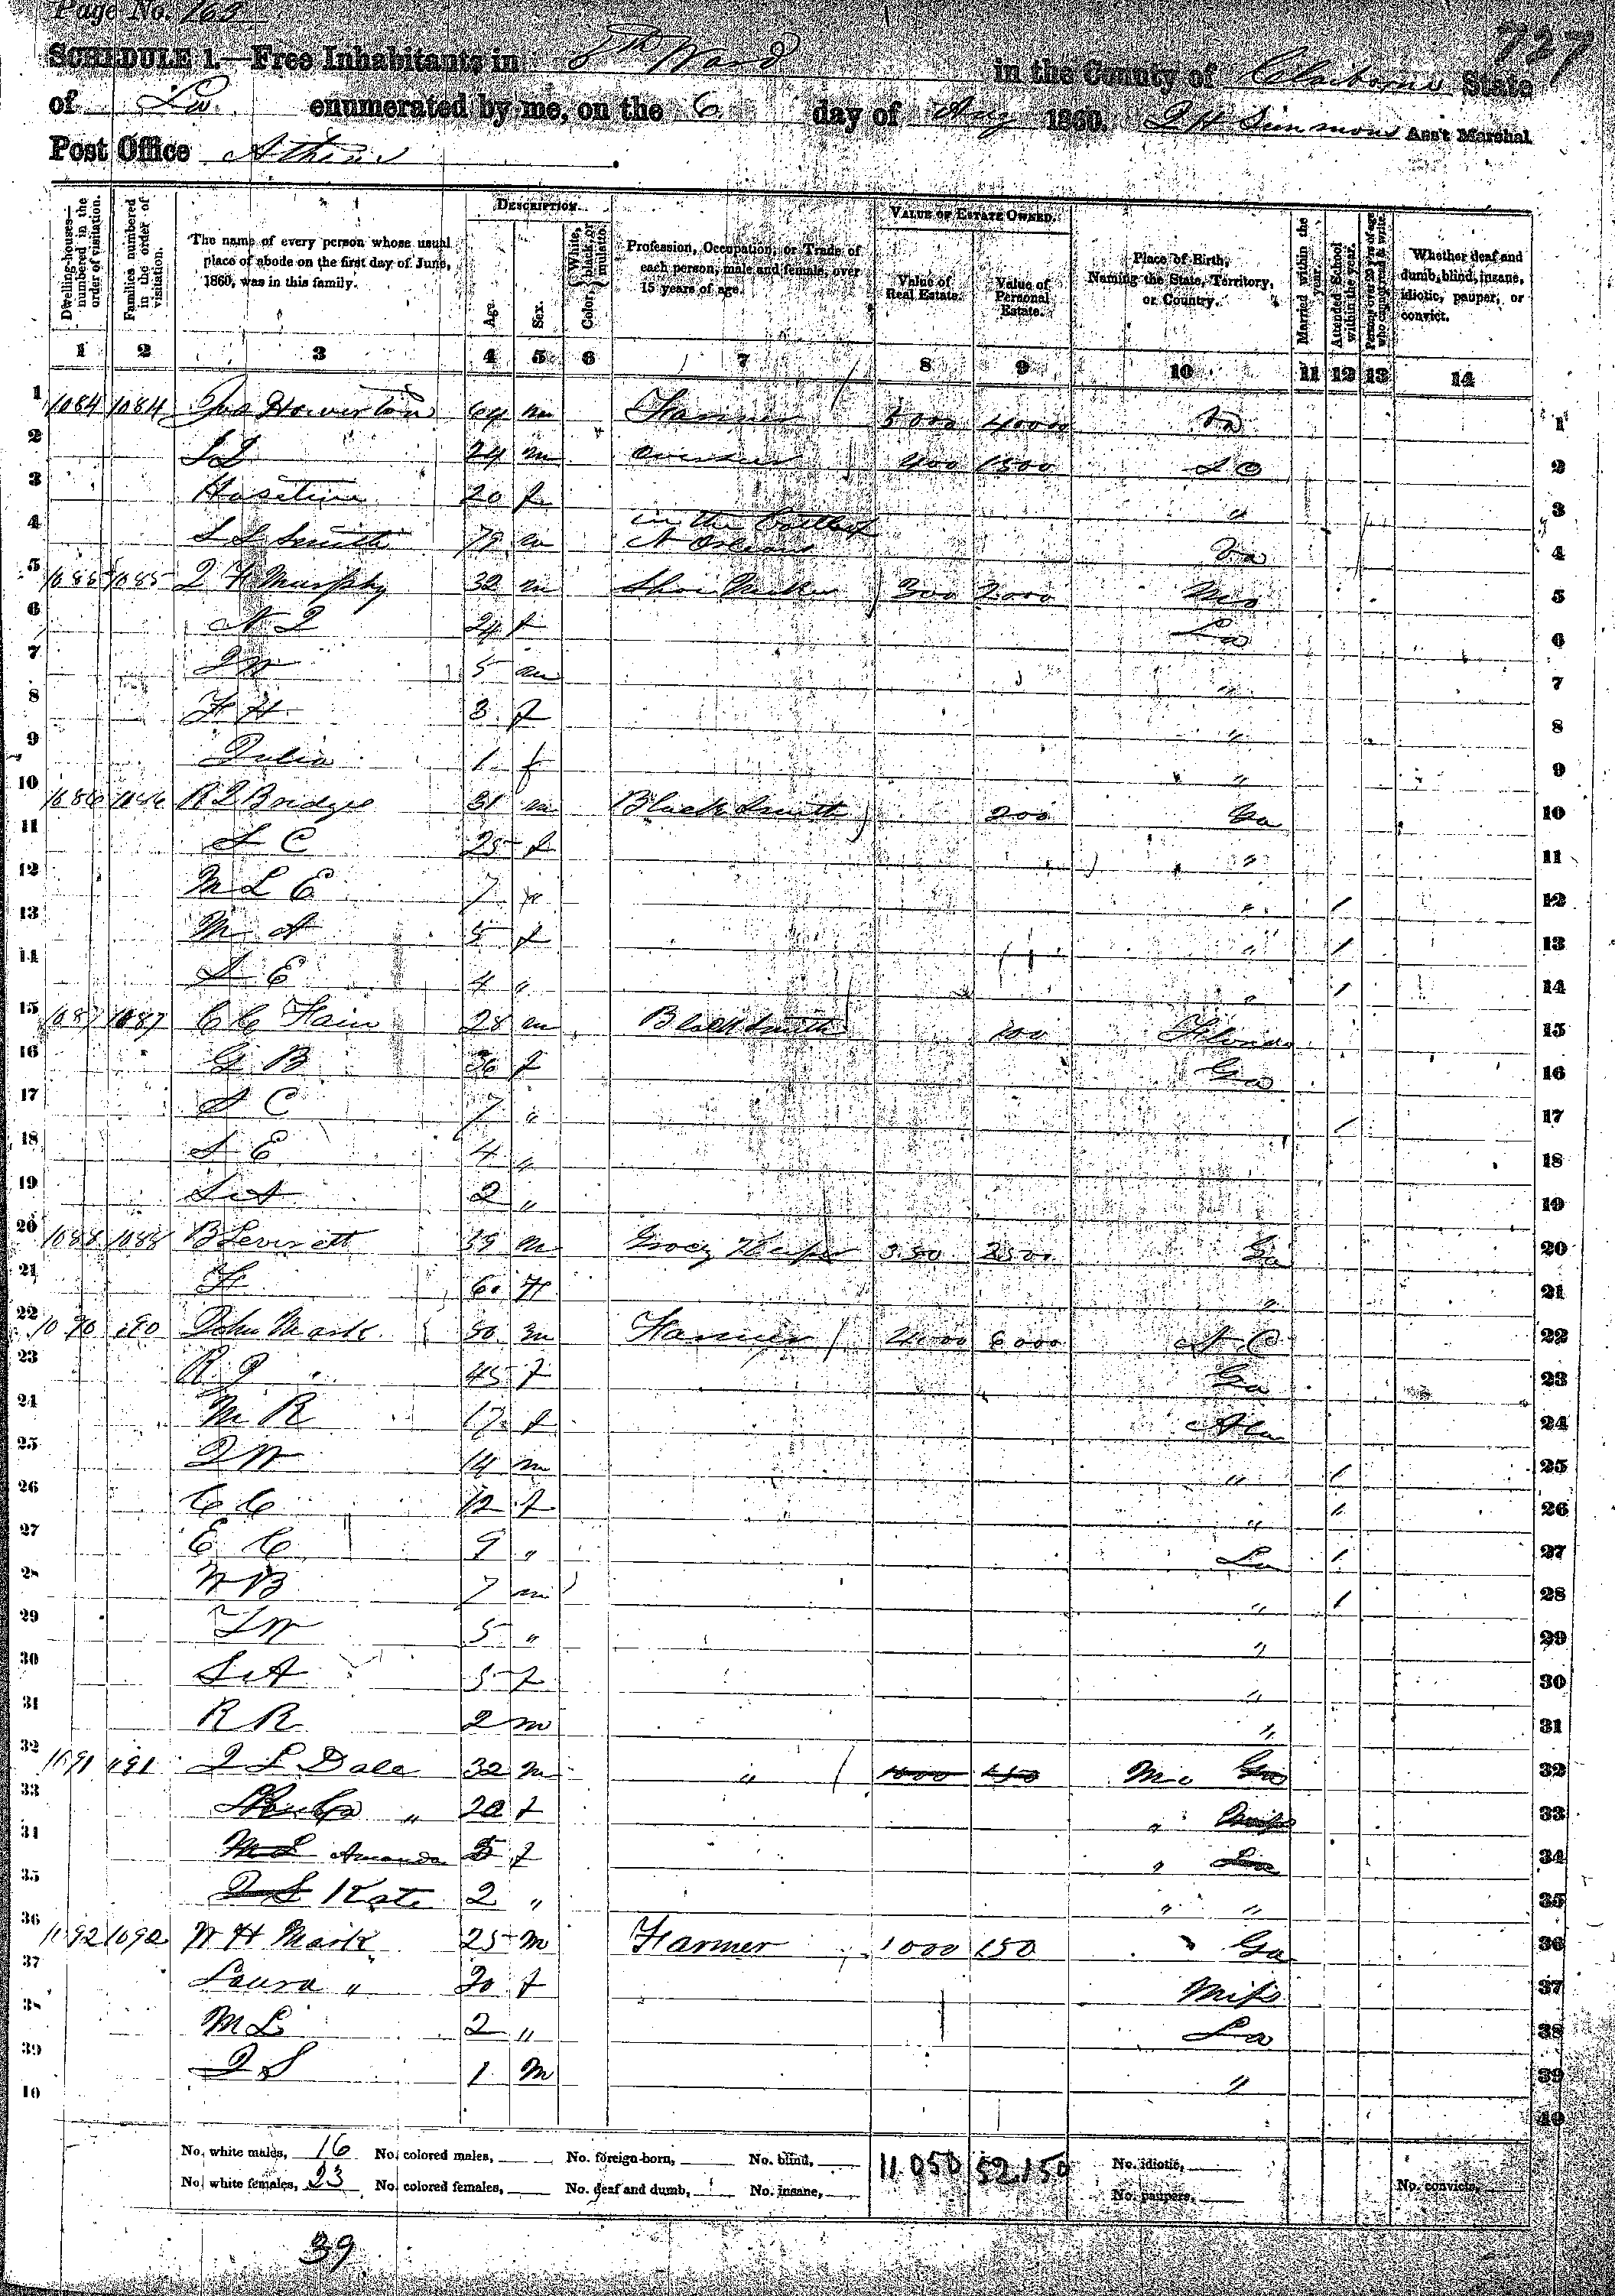 Page No. 163
727
SCHEDULE 1.—Free Inhabitants in 8th Ward in the County of Claiborne State
of La. enumerated by me, on the 6 day of Aug 1860. Simmons Ass't Marshal.
Post Office Athens
Dwelling-houses—numbered in the order of visitation.
Families numbered in the order of visitation.
The name of every person whose usual place of abode on the first day of June, 1860, was in this family.
DESCRIPTION.
Age.
Sex.
Color, {White, black, or mulatto.
Profession, Occupation, or Trade of each person, male and female, over 15 years of age.
VALUE OF ESTATE OWNED.
Value of Real Estate.
Value of Personal Estate.
Place of Birth, Naming the State, Territory, or Country.
Married within the year.
Attended School within the year.
Persons over 20 years of age who cannot read & write.
Whether deaf and dumb, blind, insane, idiotic, pauper, or convict.
1 2 3 4 5 6 7 8 9 10 11 12 13 14
1 1084 1084 Howerton 64 m Farmer 5000 40000 Va 1
2 24 m Overseer 400 1500 2
3 20 f " 3
4 S L Smith 79 N Orleans Va 4
5 1085 1085 Murphy 32 m Shoe Maker 300 2000 5
6 24 f La 6
7 5 m " 7
8 F H 3 f " 8
9 Julia 1 f " 9
10 1086 1086 R J Bridges 31 m Black Smith 200 Ga 10
11 S C 25 f " 11
12 M L E 7 f " / 12
13 M A 5 f " / 13
14 S E 4 " " / 14
15 1087 1087 C C Hain 28 m Blacksmith 100 Florida 15
16 G B 26 f Ga 16
17 S C 7 " / 17
18 S E 4 " 18
19 S A 2 " 19
20 1088 1088 B Leverett 39 m Grocy Keeper 350 2500 Ga 20
21 F 60 F " 21
22 1090 1090 John Mark 50 m Farmer 4000 6000 N C 22
23 R J 45 f Ga 23
24 M R 17 f Ala 24
25 J W 14 m " / 25
26 C C 12 f " / 26
27 E C 9 " La / 27
28 W B 7 m " / 28
29 5 " " 29
30 S A 5 f " 30
31 R R 2 m " 31
32 1091 1091 J L Dale 32 m " 1000 150 Mo Ga 32
33 " 20 f " Miss 33
34 M L Amanda 5 f " La 34
35 J S Kate 2 " " " 35
36 1092 1092 W H Mark 25 m Farmer 1000 150 Ga 36
37 Laura " 20 f Miss 37
38 M L 2 " La 38
39 J S 1 m " 39
40 40
No. white males, 16 No. colored males, No. foreign-born, No. blind, 11,050 52,150 No. idiotic,
No. white females, 23 No. colored females, No. deaf and dumb, No. insane, No. paupers, No. convicts,
39